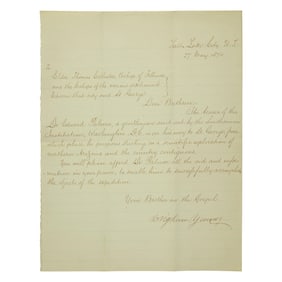 Salt Lake City, U.T.
27 May 1870
To
Elder Thomas Callister, Bishop of Fillmore
and the Bishops of the various settlements
between that city and St. George
Dear Brethren:
The bearer of this
Dr. Edward Palmer, a gentleman sent out by the Smithsonian
Institution, Washington D.C. is on his way to St. George, from
which place he proposes starting on a scientific exploration of
northern Arizona and the country contiguous.
You will please afford Dr. Palmer all the aid and infor-
mation in your power, to enable him to successfully accomplish
the objects of the expedition.
Your Brother in the Gospel
Brigham Young